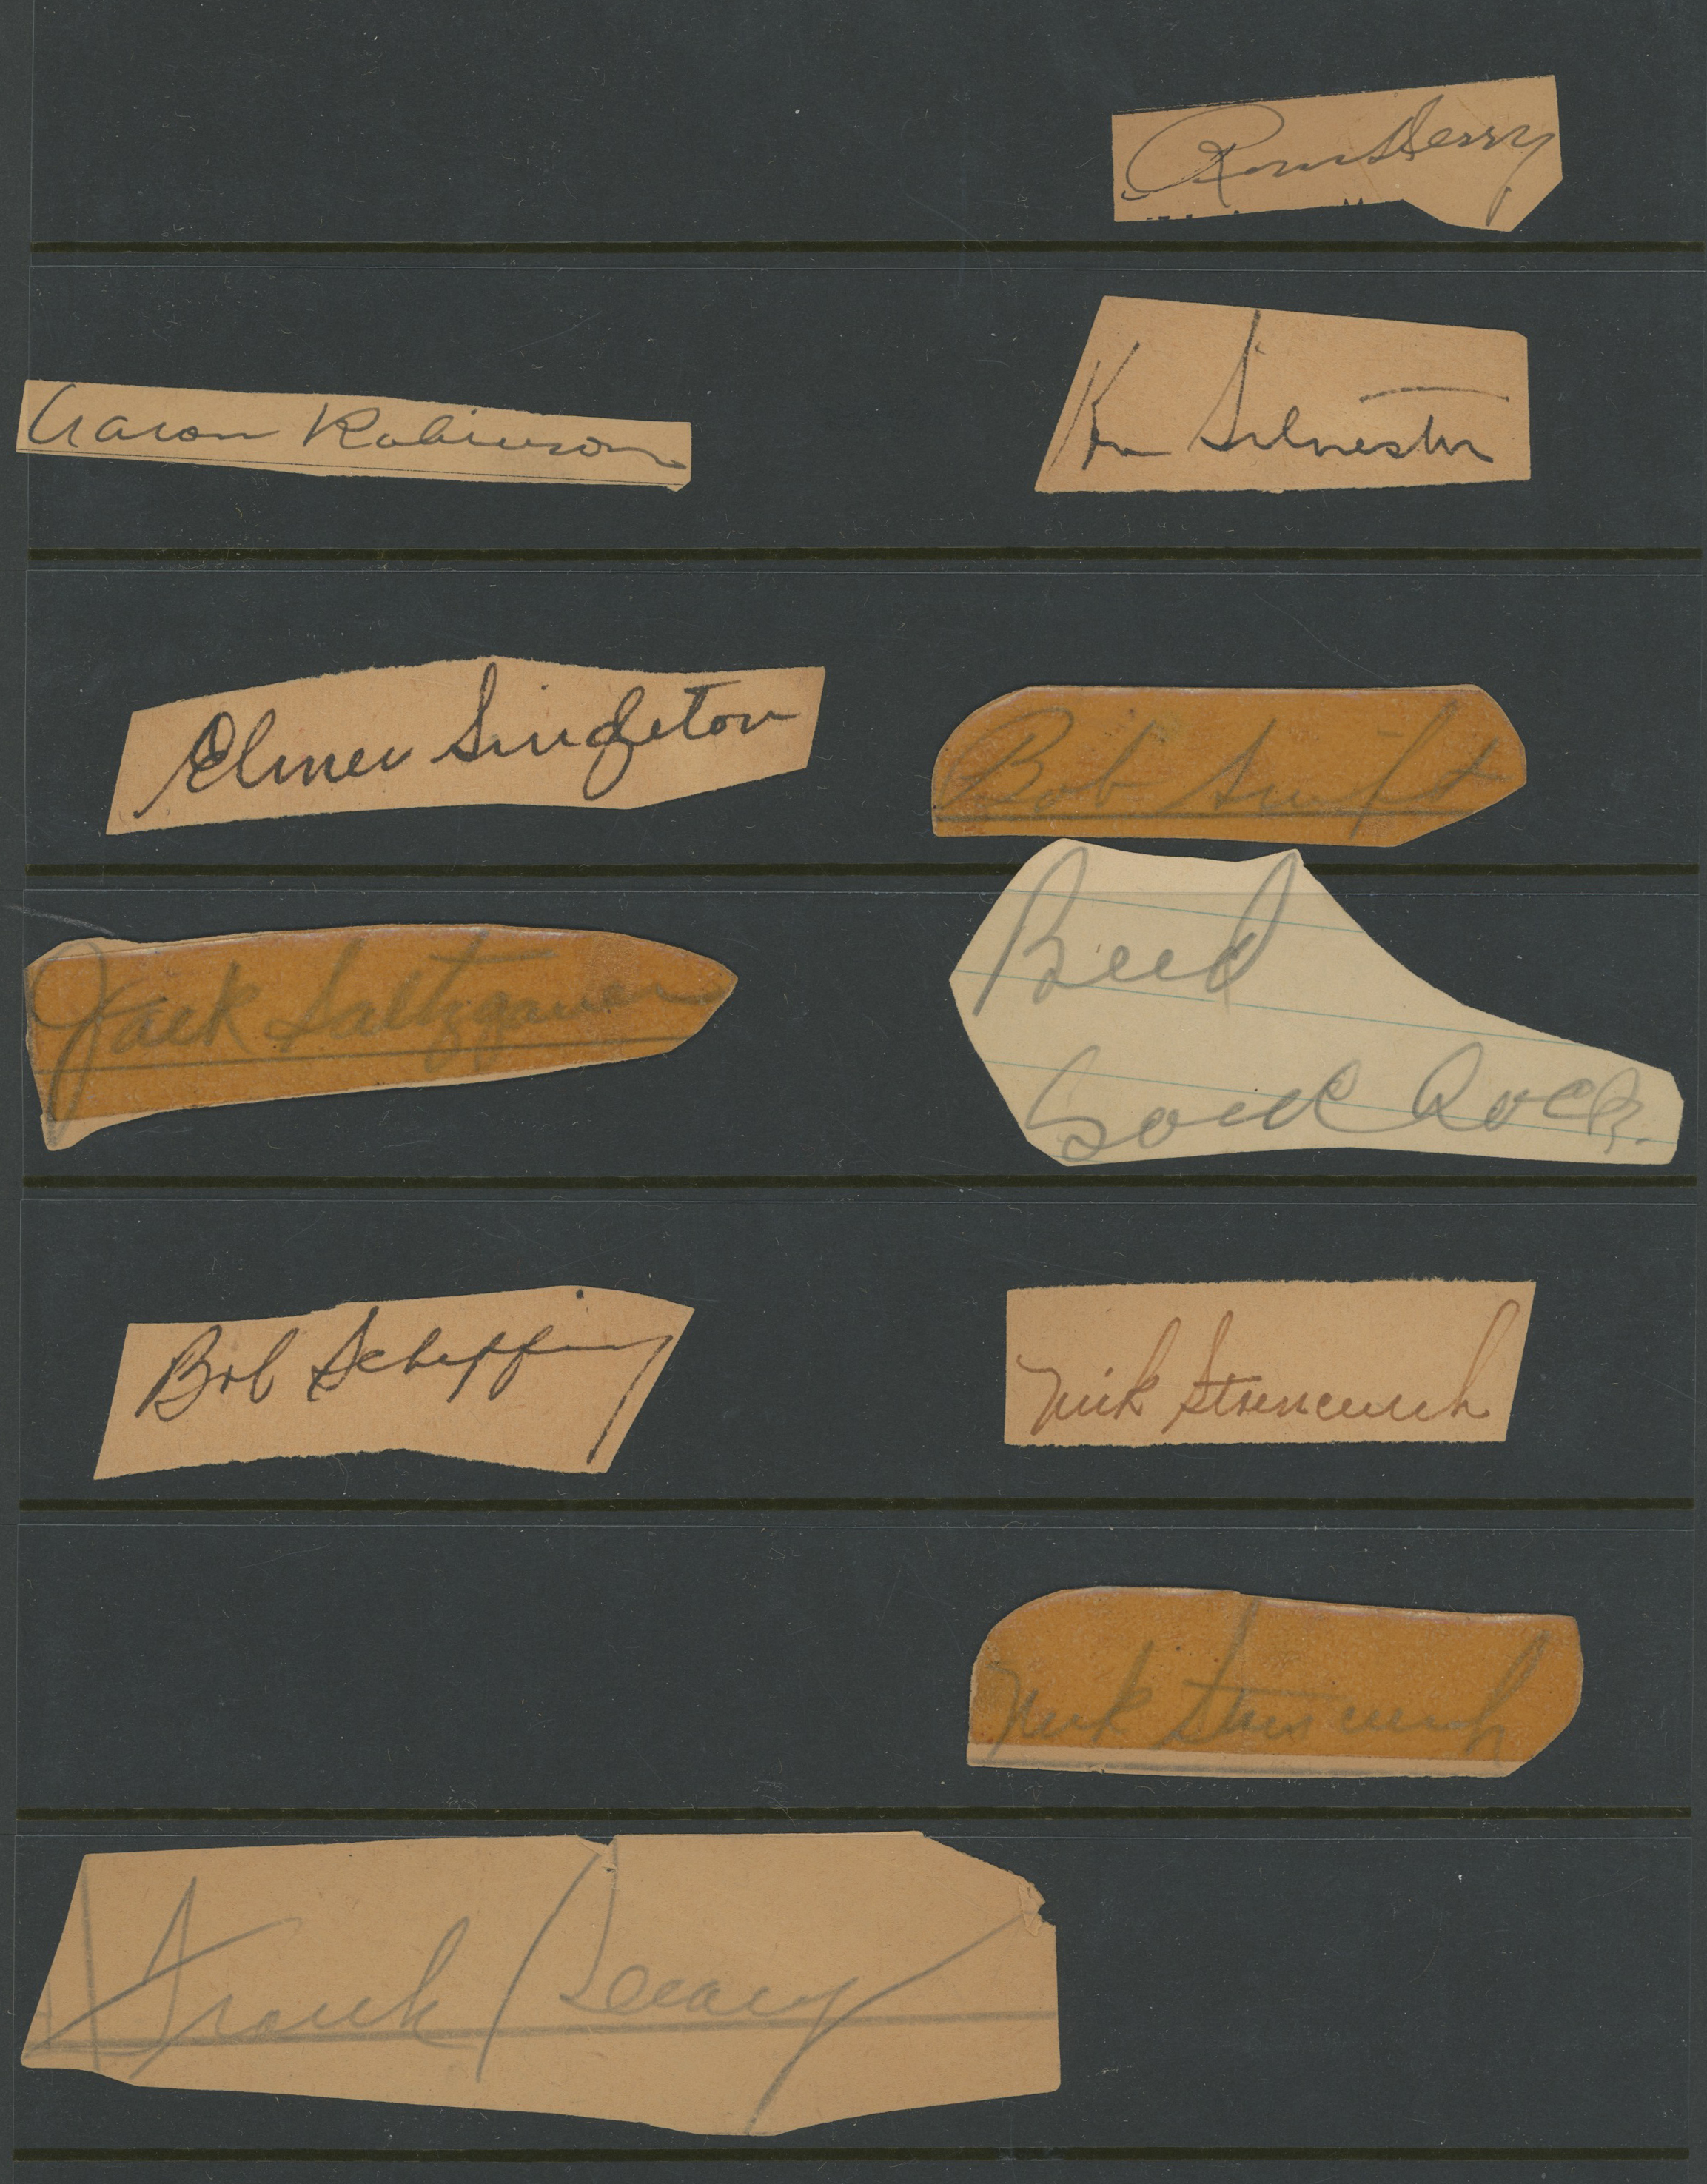 Aaron Robinson
Ken Silvester
Elmer Singleton
Bob Swift
Jack Saltzgaver
Reed
Bob Scheffing
Nick Strincevich
Nick Strincevich
Frank Secory